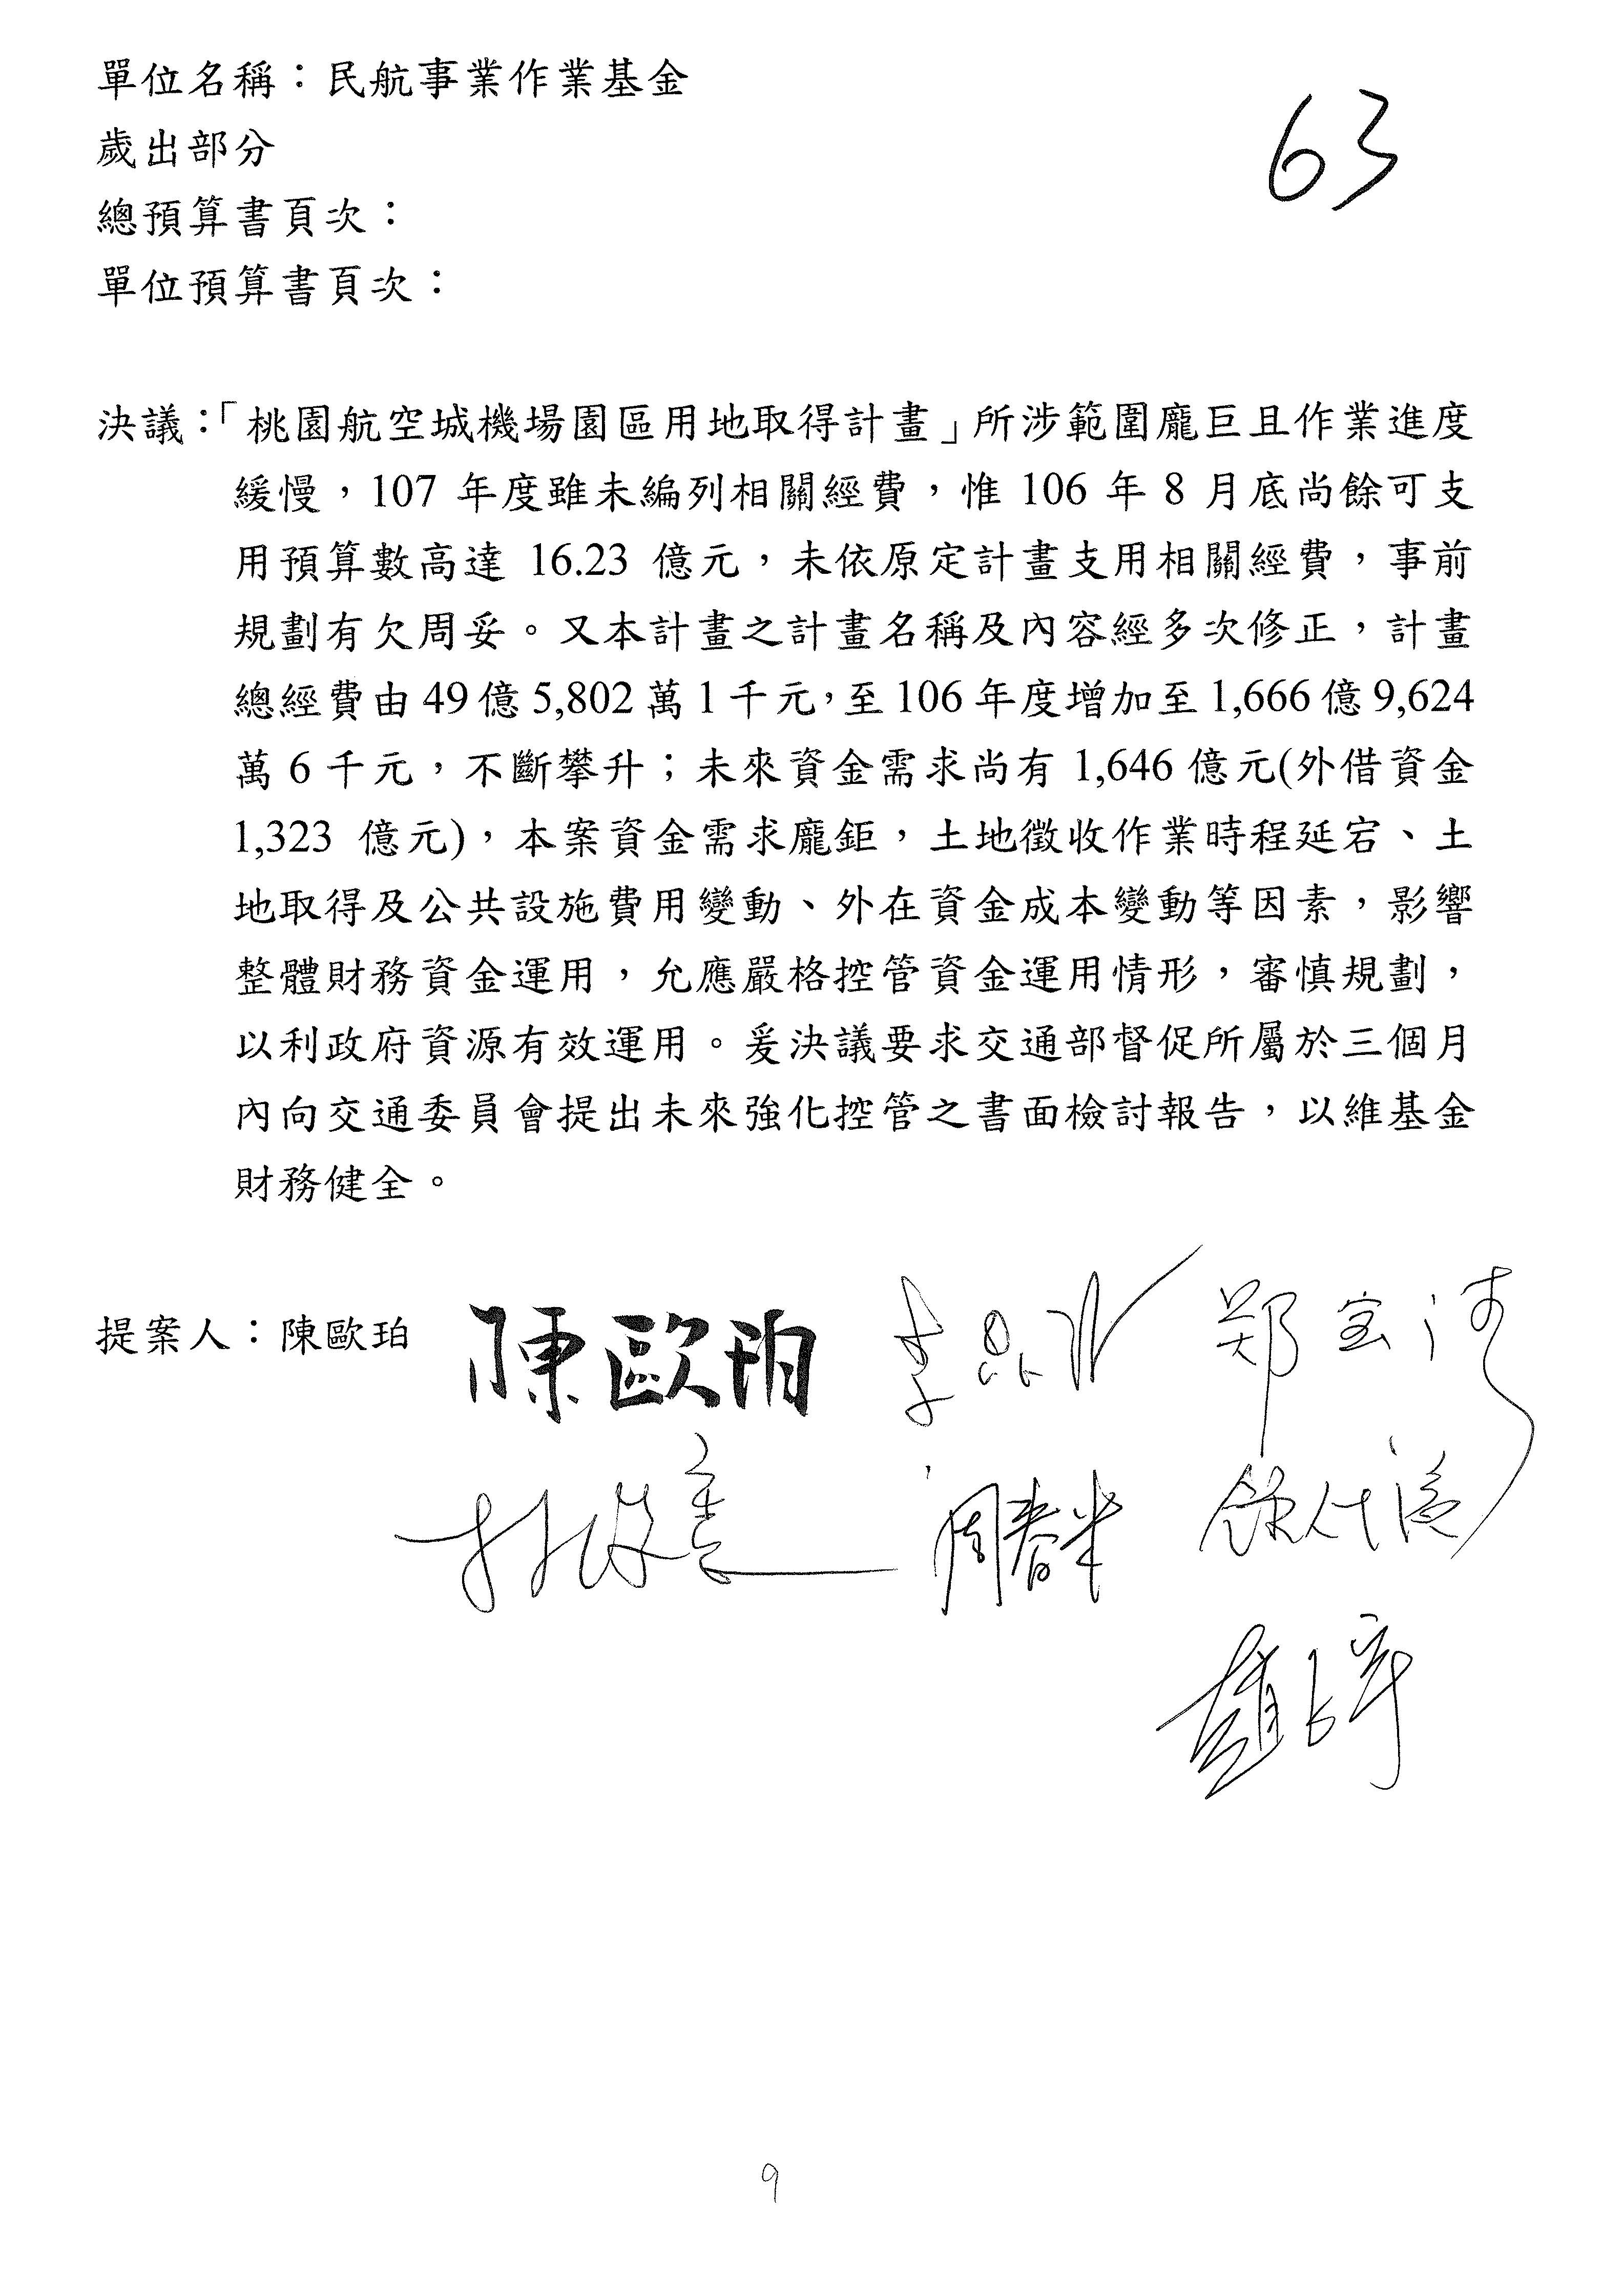 單位名稱：民航事業作業基金
63
歲出部分
總預算書頁次：
單位預算書頁次：
決議：「桃園航空城機場園區用地取得計畫」所涉範圍龐巨且作業進度
緩慢，107 年度雖未編列相關經費，惟 106 年 8 月底尚餘可支
用預算數高達 16.23 億元，未依原定計畫支用相關經費，事前
規劃有欠周妥。又本計畫之計畫名稱及內容經多次修正，計畫
總經費由 49 億 5,802 萬 1 千元，至 106 年度增加至 1,666 億 9,624
萬 6 千元，不斷攀升；未來資金需求尚有 1,646 億元(外借資金
1,323 億元)，本案資金需求龐鉅，土地徵收作業時程延宕、土
地取得及公共設施費用變動、外在資金成本變動等因素，影響
整體財務資金運用，允應嚴格控管資金運用情形，審慎規劃，
以利政府資源有效運用。爰決議要求交通部督促所屬於三個月
內向交通委員會提出未來強化控管之書面檢討報告，以維基金
財務健全。
提案人：陳歐珀 陳歐珀 李昆 郑宝清
林俊憲 周春米
9